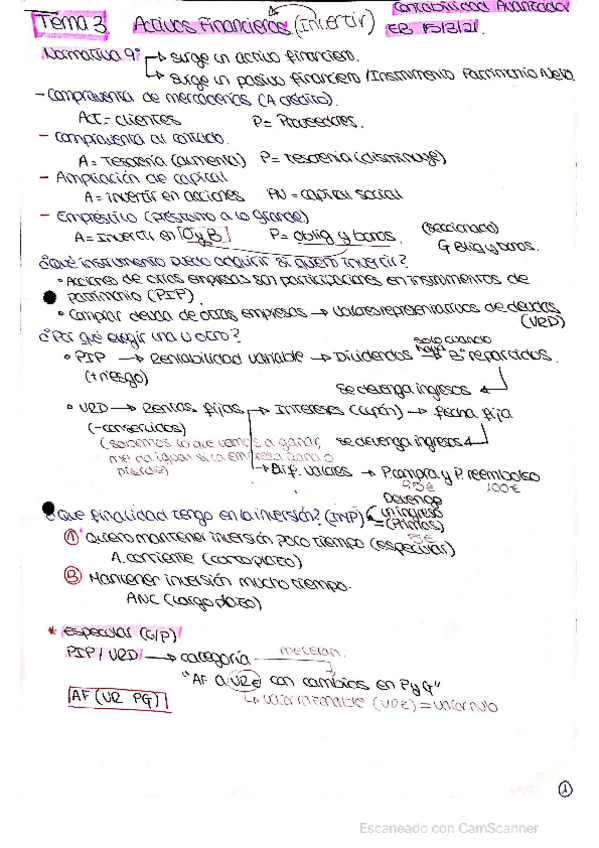 Contabilidad Avanzada
Tema 3 Activos Financieros (Invertir) EB 15/2/21.
Normativa 9ª → surge un activo financiero.
→ surge un pasivo financiero / Instrumento Patrimonio Neto.
- Compraventa de mercaderías (A crédito).
Act = clientes P = Proveedores.
- Compraventa al contado.
A = Tesorería (aumenta) P = tesorería (disminuye)
- Ampliación de capital
A = invertir en acciones PN = capital social
- Empréstito (préstamo a lo grande)
A = Invertir en [O y B] P = oblig y bonos. (seccionado)
G Oblig y bonos.
¿Qué instrumento puedo adquirir si quiero invertir?
• Acciones de otras empresas son participaciones en instrumentos de
patrimonio (PIP).
• Comprar deuda de otras empresas → valores representativos de deudas
(VRD)
¿Por qué elegir una u otro?
• PIP → Rentabilidad variable → Dividendos solo cuando haya → Bº repartidos.
(+ riesgo)
Se devenga ingresos
• VRD → Rentas fijas → Intereses (cupón) → fecha fija
(- conservidos)
(sabemos lo que vamos a ganar, se devenga ingresos
me da igual si la empresa gana o
pierde)
→ Dif. valores → P. compra y P. reembolso
95€ 100€
Devenga
un ingreso
= (Primas)
5€
¿Que finalidad tengo en la inversión? (IMP)
① Quiero mantener inversión poco tiempo (especular)
A. corriente (corto plazo)
Ⓑ Mantener inversión mucho tiempo.
ANC (largo plazo)
* especular (C/P)
PIP / VRD → categoría
"AF a VRe con cambios en P y G"
AF (VR PG) ↳ valor razonable (VRe) =
1
Escaneado con CamScanner